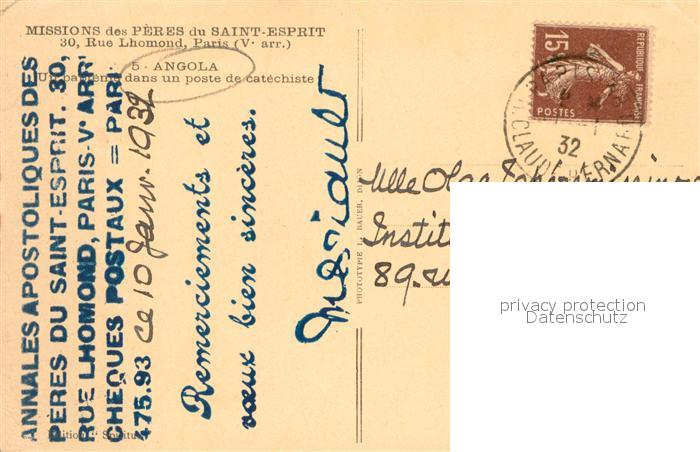 MISSIONS des PÈRES du SAINT-ESPRIT
30, Rue Lhomond, Paris (Vᵉ arr.)
5 - ANGOLA
Un baptême dans un poste de catéchiste
ANNALES APOSTOLIQUES DES
PÈRES DU SAINT-ESPRIT. 30,
RUE LHOMOND, PARIS-Vᵉ ARRᵗ
CHÈQUES POSTAUX = PARIS
475.93 ce 10 Janv. 1932
Remerciements et
vœux bien sincères.
PHOTOTYPIE L. BAUER, DIJON
15ᶜ
REPUBLIQUE FRANÇAISE
POSTES
32
CLAUDE BERNARD
Mlle Olga
Instit
89. ru
privacy protection
Datenschutz